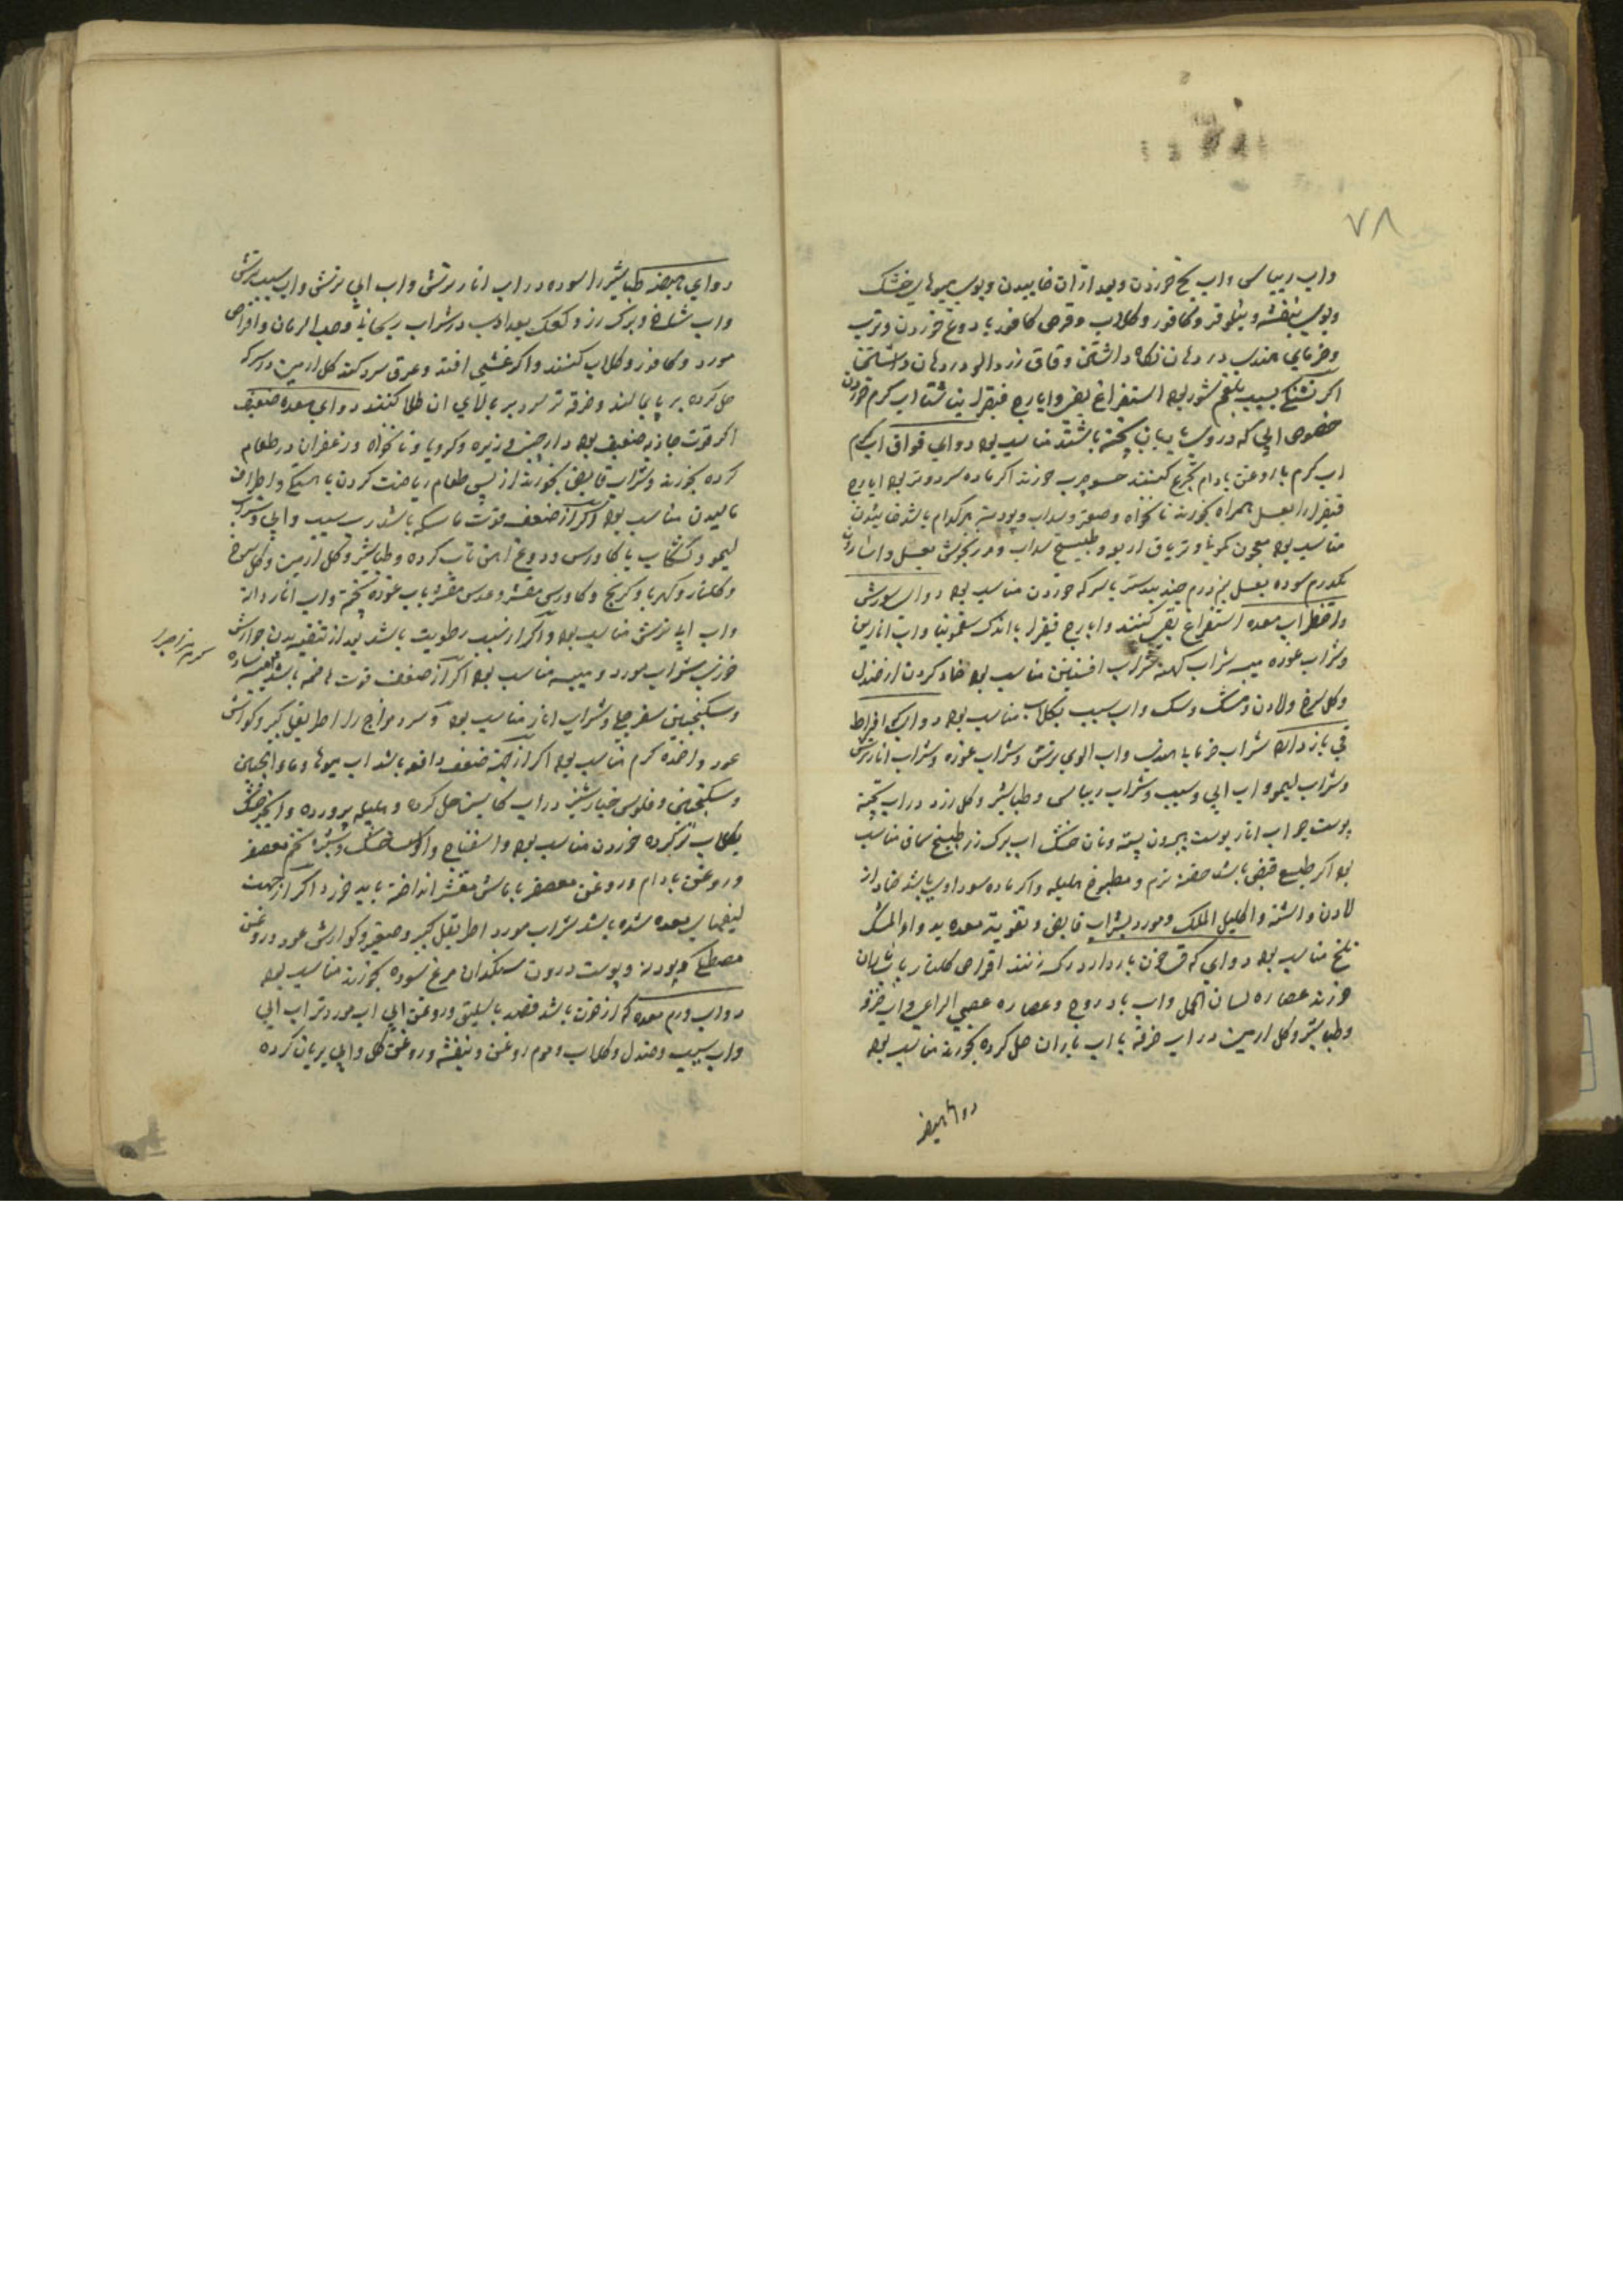 ۷۸
واب ریباس واب یخ خوردن وبعد ازان خاییدن وبوی میوهای خشک
وبوی بنفشه ونیلوفر وکافور وکلاب وقرص کافور با دوغ خوردن وترب
وخرمای هندی در دهان نکاه داشتن وقاق زردالو در دهان داشتن
اکر تشنکی بسبب بلغم شور بود استفراغ بقی وایارج فیقرا ناشتا اب کرم خوردن
خصوص ابی که دروی بادیان پخته باشند مناسب بود دوای فواق اب کرم
اب کرم با روغن بادام تجرع کنند حسو چرب خورند اکر ماده سرد وتر بود ایارج
فیقرا با عسل همراه بخورند نانخواه وصعتر وسداب وپودینه هرکدام باشد خاییدن
مناسب بود معجون کمونی وتریاق اربعه وطبیخ سداب بعسل
یکدرم سوده بعسل نیم درم جندبیدستر با سرکه خوردن مناسب بود دوای سوزش
واضطراب معده استفراغ بقی کنند وایارج فیقرا با اندک سقمونیا واب انارین
وشراب غوره میبه شراب کهنه شراب افسنتین مناسب بود ضماد کردن از صندل
وکل سرخ ولادن ومشک وسک واب سیب بکلاب مناسب بود دوای که افراط
قی باز دارد شراب خرمای هندی واب الوی ترش وشراب غوره وشراب انار ترش
وشراب لیمو واب ابی وسیب وشراب ریباس وطباشیر وکل زرد در اب پخته
پوست جو اب انار پوست بیرون پسته ونان خشک اب برک رز طبیخ سماق مناسب
بود اکر طبع قبض باشد حقنه نرم ومطبوخ هلیله واکر ماده سوداوی باشد ضماد از
لادن واشنه واکلیل الملک ومورد بشراب قابض وتقویت معده بدواء المسک
تلخ مناسب بود دوای که قی خون باز دارد رک زنند اقراص کلنار با
خورند عصاره لسان الحمل واب بادروج وعصاره عصی الراعی واب خرفه
وطباشیر وکل ارمنی در اب خرفه با اب باران حل کرده بخورند مناسب بود
دوای هیضه
دوای هیضه طباشیر را سوده در اب انار ترش واب ابی ترش واب سیب ترش
واب شاخ وبرک رز وکعک بعد ازان در شراب ریحانی وحب الرمان واقراص
مورد وکافور وکلاب کنند واکر غشی افتد وعرق سرد کند کل ارمنی در سرکه
حل کرده بر پا بمالند وخرقه تر سرد بر بالای ان طلا کنند دوای معده ضعیف
اکر قوت جاذبه ضعیف بود دارچینی وزیره وکرویا ونانخواه وزعفران در طعام
کرده بخورند وشراب قابض بخورند از پس طعام ریاضت کردن باهستکی واطراف
مالیدن مناسب بود اکر از ضعف قوت ماسکه باشد رب سیب وابی وشراب
لیمو وکشکاب با کاورس ودوغ اهن تاب کرده وطباشیر وکل ارمنی وکل سرخ
وکلنار وکهربا وکرنج وکاورس مقشر وعدس مقشر باب غوره پخته واب انار دانه
واب ابی ترش مناسب بود واکر از سبب رطوبت باشد بعد از تنقیه بدن جوارش
خوزی شراب مورد ومیبه مناسب بود اکر از ضعف قوت هاضمه باشد میبه ساده
وسکنجبین سفرجلی وشراب انار مناسب بود وسرد مزاج را اطریفل کبیر وکوارش
عود واغذیه کرم مناسب بود اکر از جهة ضعف دافعه باشد اب میوها وماء الجبن
وسکنجبین وفلوس خیارشنبر در اب کاسنی حل کرده وهلیله پرورده وانجیر خشک
بکلاب تر کرده خوردن مناسب بود واسفناج والو خشک وشیره تخم معصفر
وروغن بادام وروغن معصفر با ماش مقشر انداخته باید خورد اکر از جهت
لیفهای معده شده باشد شراب مورد اطریفل کبیر وصغیر وکوارش عود وروغن
مصطکی وپودنه وپوست درون سنکدان مرغ سوده بخورند مناسب بود
دوای ورم معده که از خون باشد فصد باسلیق وروغن ابی اب مورد تر اب ابی
واب سیب وصندل وکلاب وموم روغن وبنفشه وروغن کل وابی بریان کرده